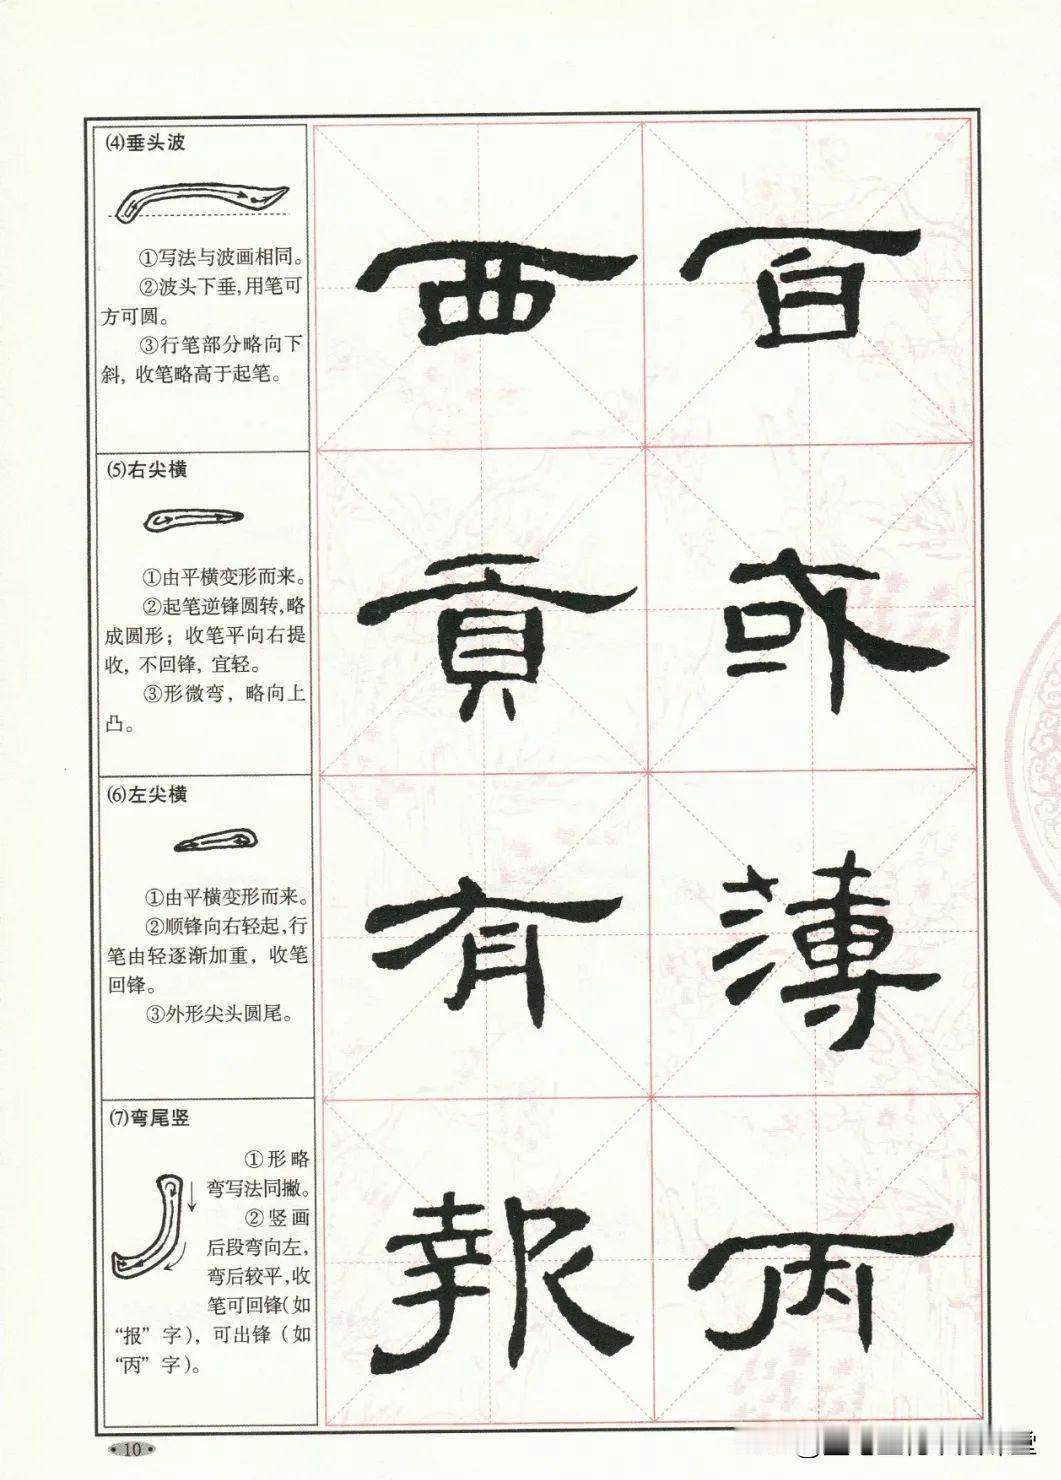 ⑷垂头波
①写法与波画相同。
②波头下垂，用笔可
方可圆。
③行笔部分略向下
斜，收笔略高于起笔。
西 百
⑸右尖横
①由平横变形而来。
②起笔逆锋圆转，略
成圆形；收笔平向右提
收，不回锋，宜轻。
③形微弯，略向上
凸。
貢 或
⑹左尖横
①由平横变形而来。
②顺锋向右轻起，行
笔由轻逐渐加重，收笔
回锋。
③外形尖头圆尾。
有 薄
⑺弯尾竖
①形略
弯写法同撇。
②竖画
后段弯向左，
弯后较平，收
笔可回锋（如
“报”字），可出锋（如
“丙”字）。
報 丙
·10·